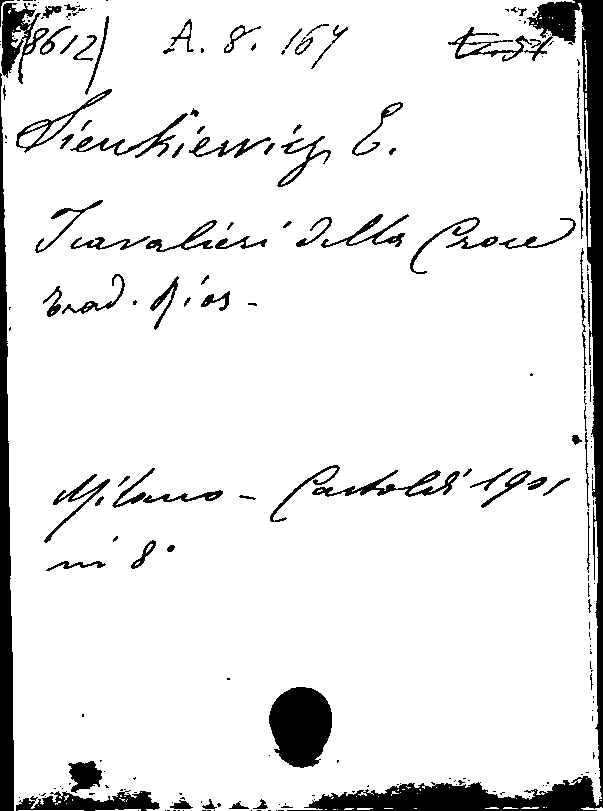 (8612) A. 8. 167
Sienkiewicz E.
I cavalieri della Croce
trad. Rios -
Milano - Castoldi 1901
in 8°